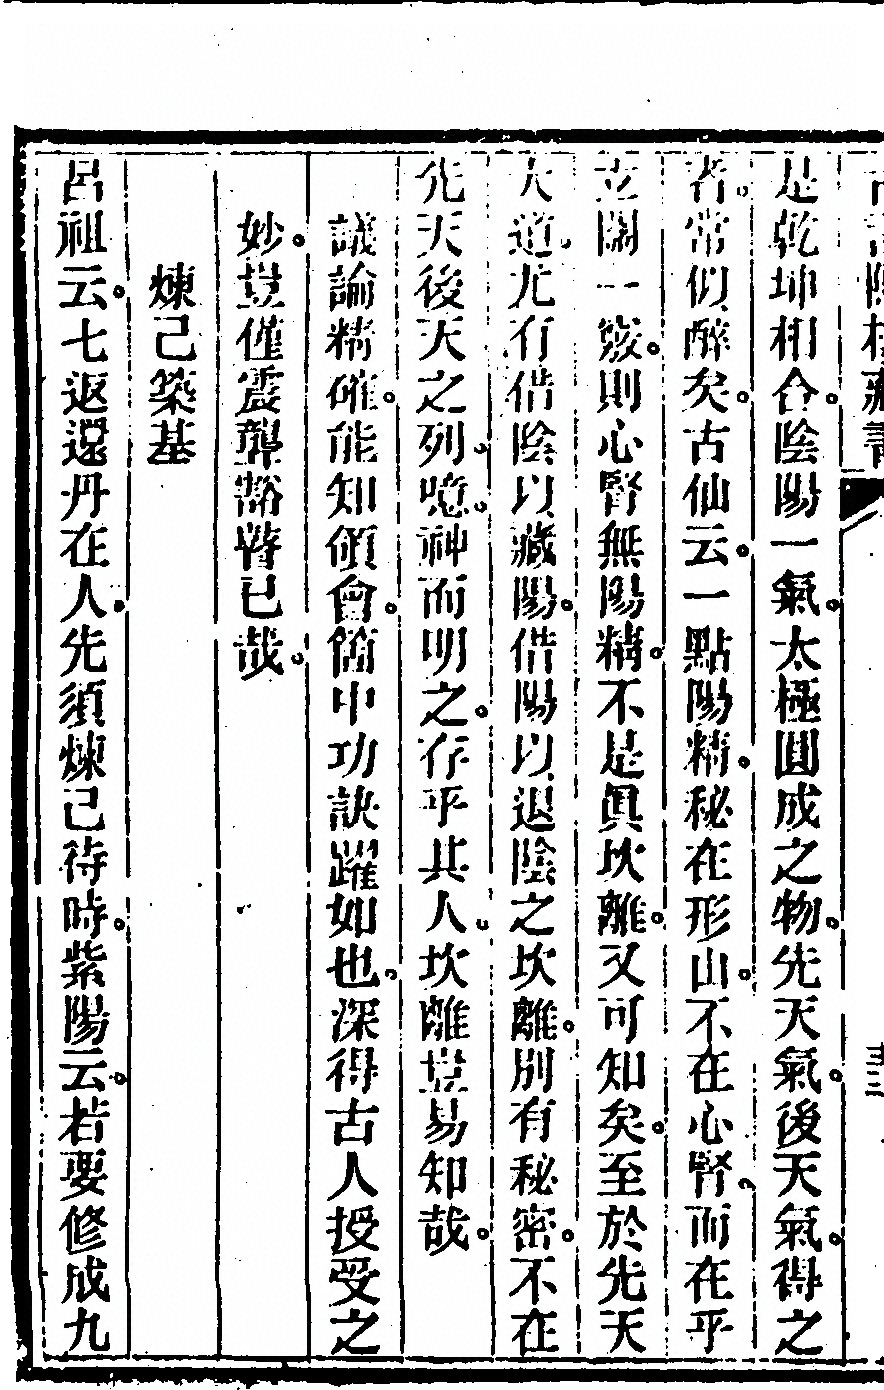 是乾坤相合。陰陽一氣。太極圓成之物。先天氣。後天氣。得之
者。常似醉矣。古仙云。一點陽精。秘在形山。不在心腎。而在乎
立關一竅。則心腎無陽精。不是眞坎離。又可知矣。至於先天
大道。尤有借陰以藏陽。借陽以退陰之坎離。別有秘密。不在
先天後天之列。噫。神而明之。存乎其人。坎離豈易知哉。
議論精確。能知領會。箇中功訣躍如也。深得古人授受之
妙。豈僅震聾豁瞽已哉。
煉己築基
呂祖云。七返還丹在人。先須煉己待時。紫陽云。若要修成九